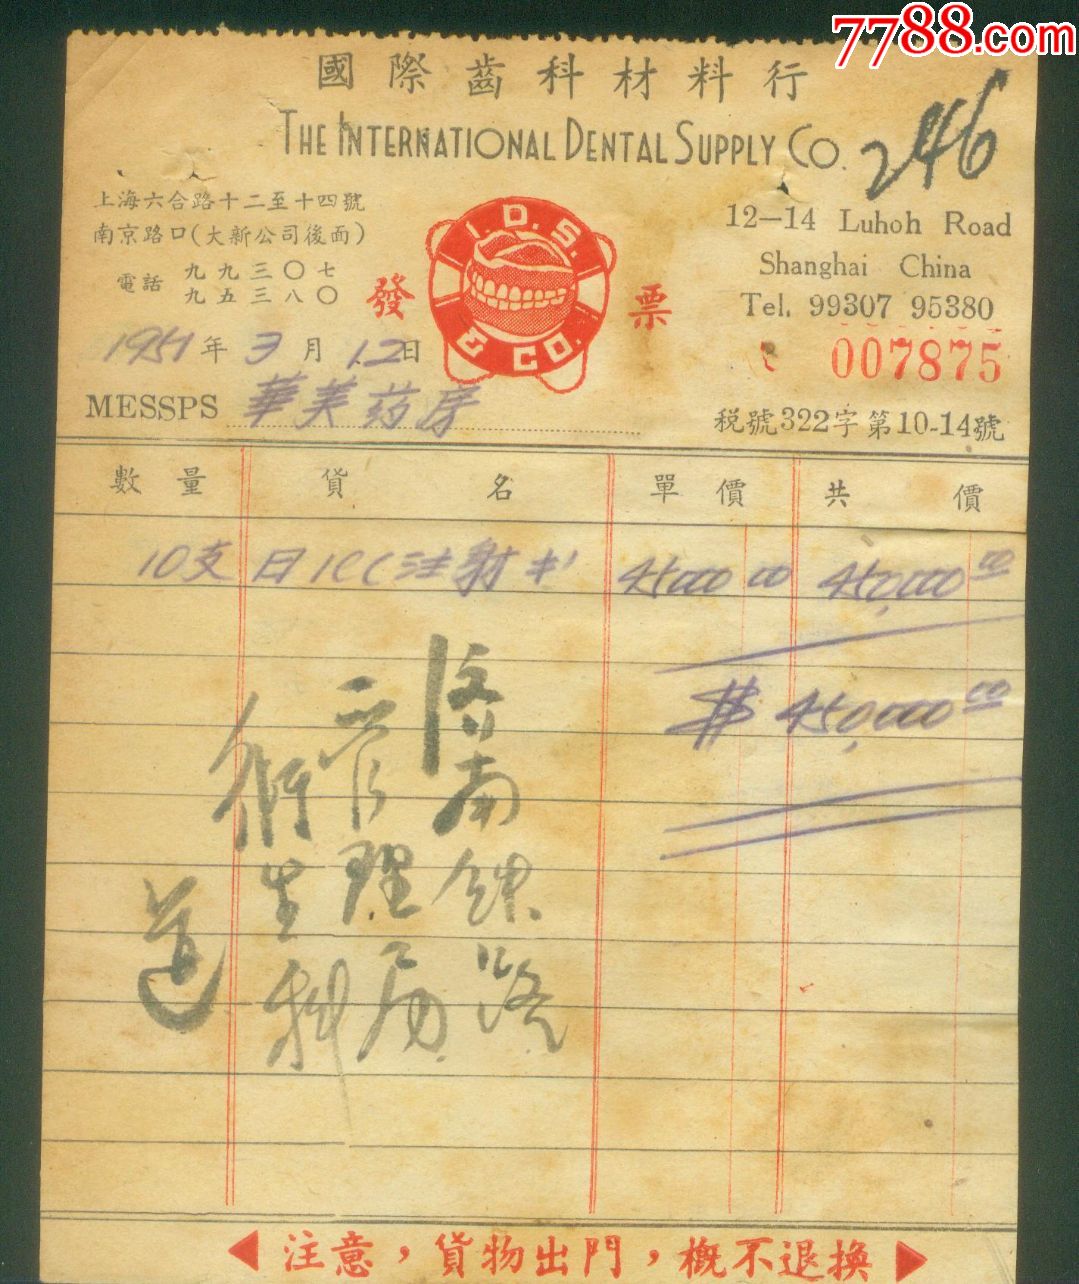 7788.com
國際齒科材料行
THE INTERNATIONAL DENTAL SUPPLY CO.
246
上海六合路十二至十四號
南京路口(大新公司後面)
電話 九九三〇七
九五三八〇
I.D.S.
& CO.
發票
12-14 Luhoh Road
Shanghai China
Tel. 99307 95380
007875
1951年3月12日
MESSPS 華美药房
税號322字第10-14號
數量 貨名 單價 共價
10支 日1CC注射 45000 00 450,000 00
$ 450,000 00
济南鉄路
管理局
衛生科
注意，貨物出門，概不退換